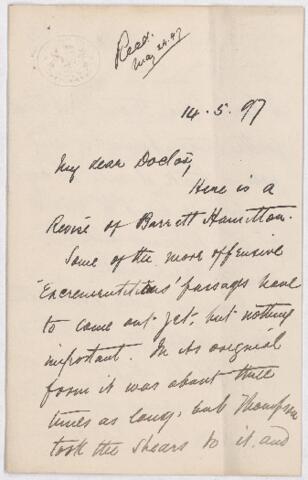 Read.
May 24. 97
14. 5. 97
My dear Doctor,
Here is a
Revise of Barrett Hamilton.
Some of the more offensive
"Excrementitious" passages have
to come out yet, but nothing
important. In its original
form it was about three
times as long, but Thompson
took the shears to it, and